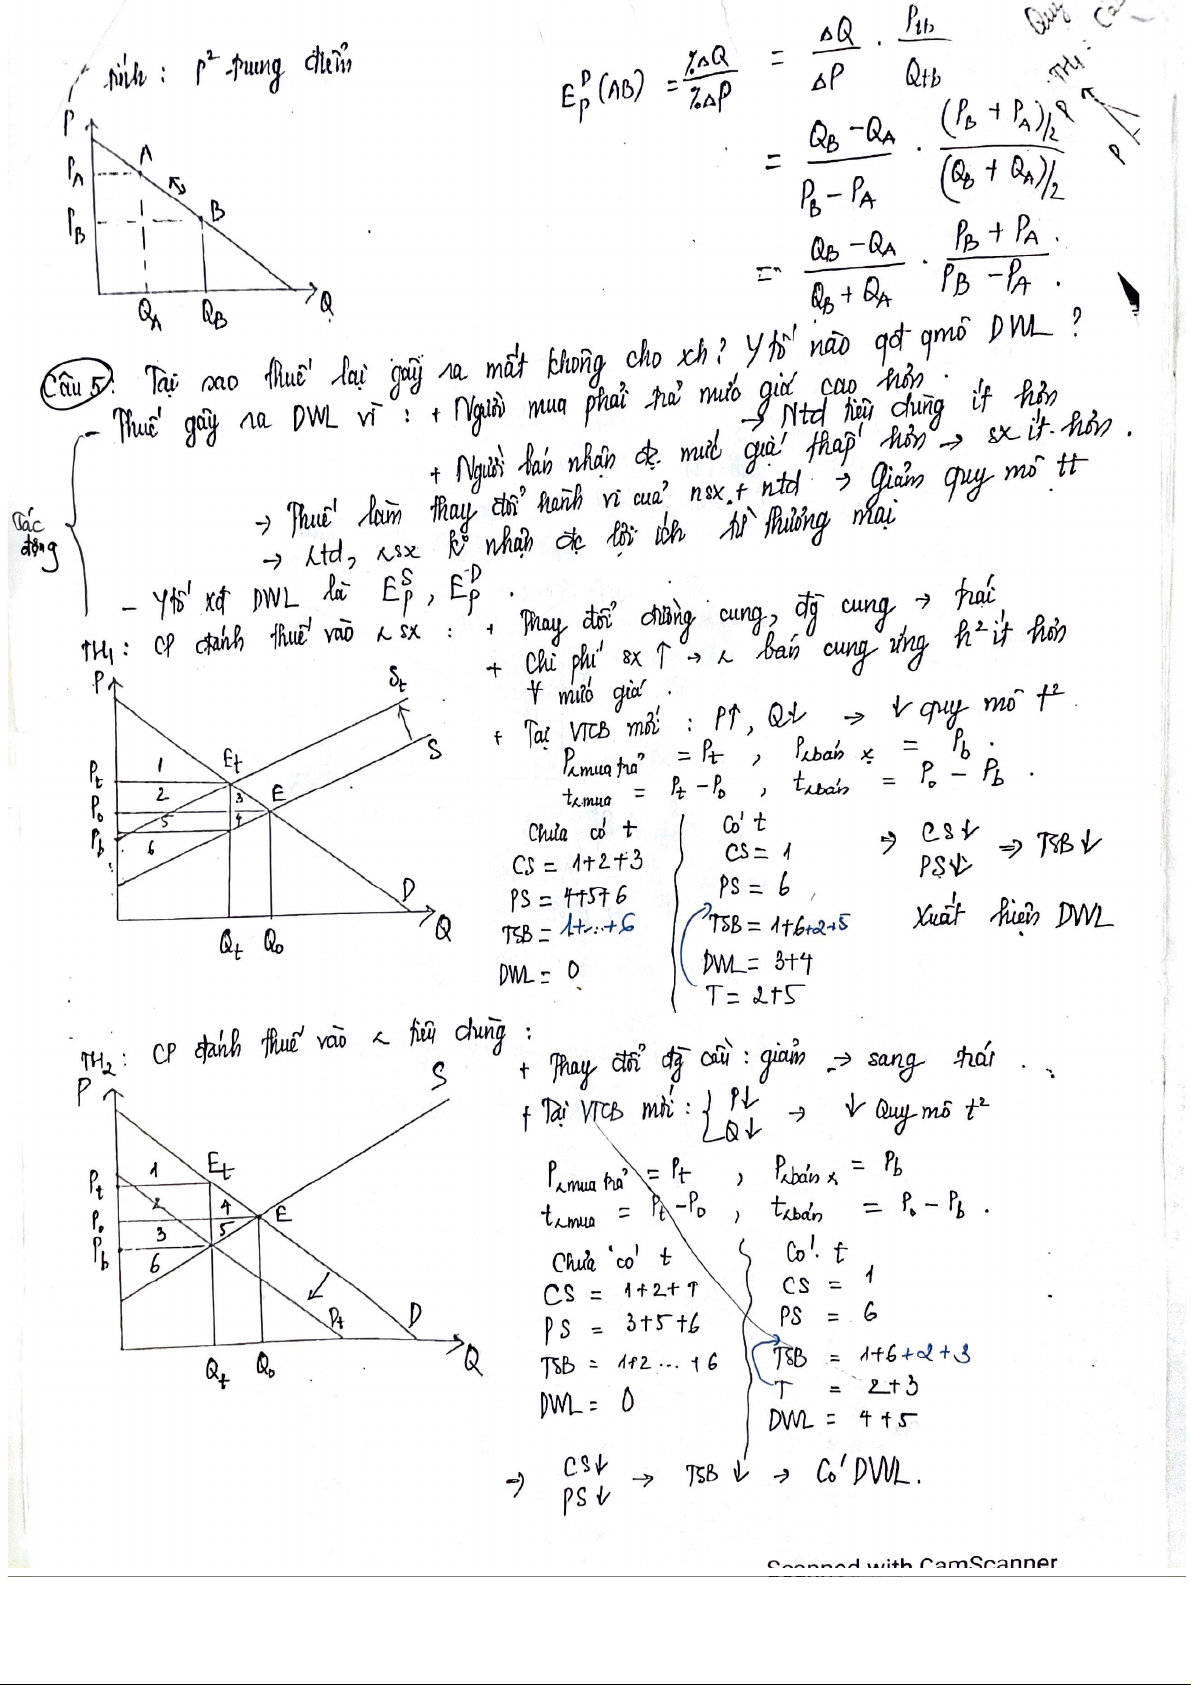 tính : p² trung điểm
E_P^D (AB) = %ΔQ / %ΔP = ΔQ / ΔP . Ptb / Qtb
= (Q_B - Q_A) / (P_B - P_A) . (P_B + P_A)/2 / (Q_B + Q_A)/2
= (Q_B - Q_A) / (Q_B + Q_A) . (P_B + P_A) / (P_B - P_A) .
P
P_A
P_B
A
B
Q_A
Q_B
Q
Quy
TH1 :
P
Câu 5 : Tại sao thuế lại gây ra mất không cho xh ? Ytố nào qđ qmô DWL ?
Tác động
- Thuế gây ra DWL vì : + Người mua phải trả mức giá cao hơn .
→ Ntd tiêu dùng ít hơn
+ Người bán nhận đc mức giá thấp hơn → sx ít hơn .
→ Thuế làm thay đổi hành vi của nsx + ntd → Giảm quy mô tt
→ ntd, nsx k nhận đc lợi ích từ thương mại
- Ytố xđ DWL là E_P^S , E_P^D .
TH1 : CP đánh thuế vào n sx : + Thay đổi đường cung, đg cung → trái
+ Chi phí sx ↑ → n bán cung ứng h² ít hơn
∀ mức giá .
+ Tại VTCB mới : P↑, Q↓ → ↓ quy mô t²
P nmua trả = Pt , P nbán x = Pb .
t nmua = Pt - P0 , t nbán = P0 - Pb .
P
Pt
P0
Pb
1
2
3
4
5
6
Et
E
St
S
D
Qt
Q0
Q
Chưa có t
CS = 1+2+3
PS = 4+5+6
TSB = 1+...+6
DWL = 0
Có t
CS = 1
PS = 6
TSB = 1+6+2+5
DWL = 3+4
T = 2+5
⇒ CS↓ PS↓ ⇒ TSB↓
Xuất hiện DWL
TH2 : CP đánh thuế vào n tiêu dùng :
+ Thay đổi đg cầu : giảm → sang trái .
+ Tại VTCB mới : { P↓ Q↓ → ↓ Quy mô t²
P nmua trả = Pt , P nbán x = Pb
t nmua = Pt - P0 , t nbán = P0 - Pb .
P
Pt
P0
Pb
1
2
3
4
5
6
Et
E
S
Dt
D
Qt
Q0
Q
Chưa có t
CS = 1+2+4
PS = 3+5+6
TSB = 1+2...+6
DWL = 0
Có t
CS = 1
PS = 6
TSB = 1+6+2+3
T = 2+3
DWL = 4+5
⇒ CS↓ PS↓ → TSB ↓ → Có DWL .
Scanned with CamScanner